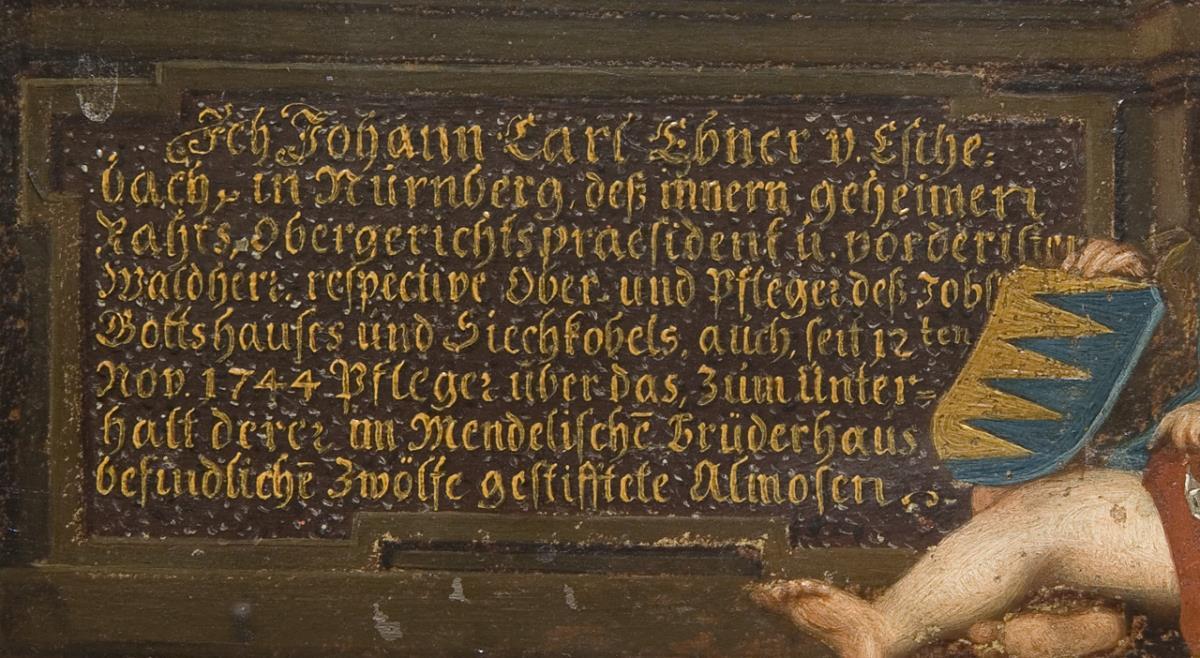 Ich Johann Carl Ebner v. Esche:
bach, in Nürnberg, deß innern geheimen
Rahts, Obergerichtspraesident u. vorderister
Waldherr, respective Ober- und Pfleger deß Jobst
Gottshauses und Siechkobels, auch, seit 12ten
Nov. 1744 Pfleger über das, zum Unter=
halt derer im Mendelischē Brüderhaus
befindlichē Zwölfe gestifftete Almosen